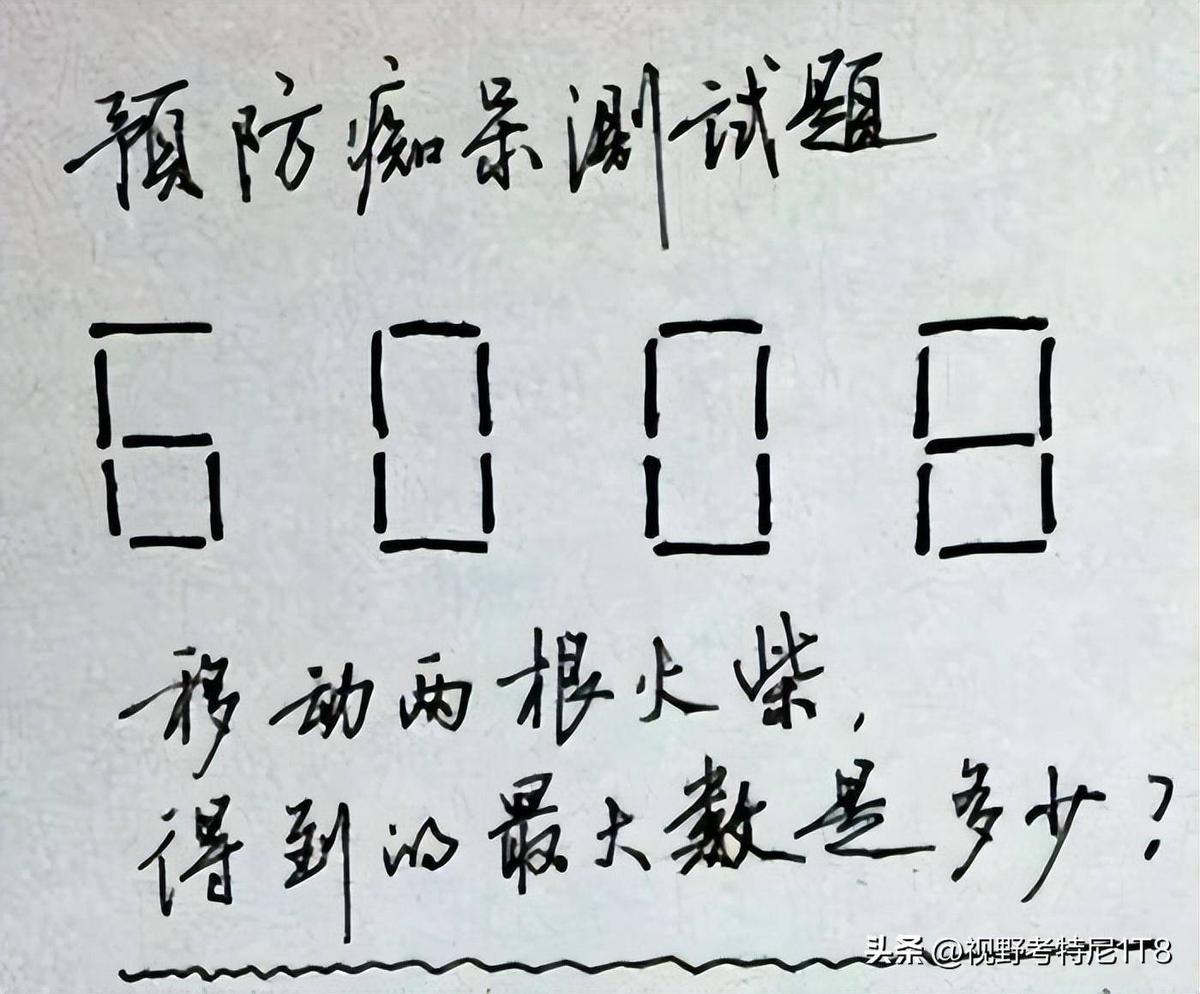 预防痴呆测试题
6 0 0 8
移动两根火柴，
得到的最大数是多少？
头条 @视野考特尼1T8